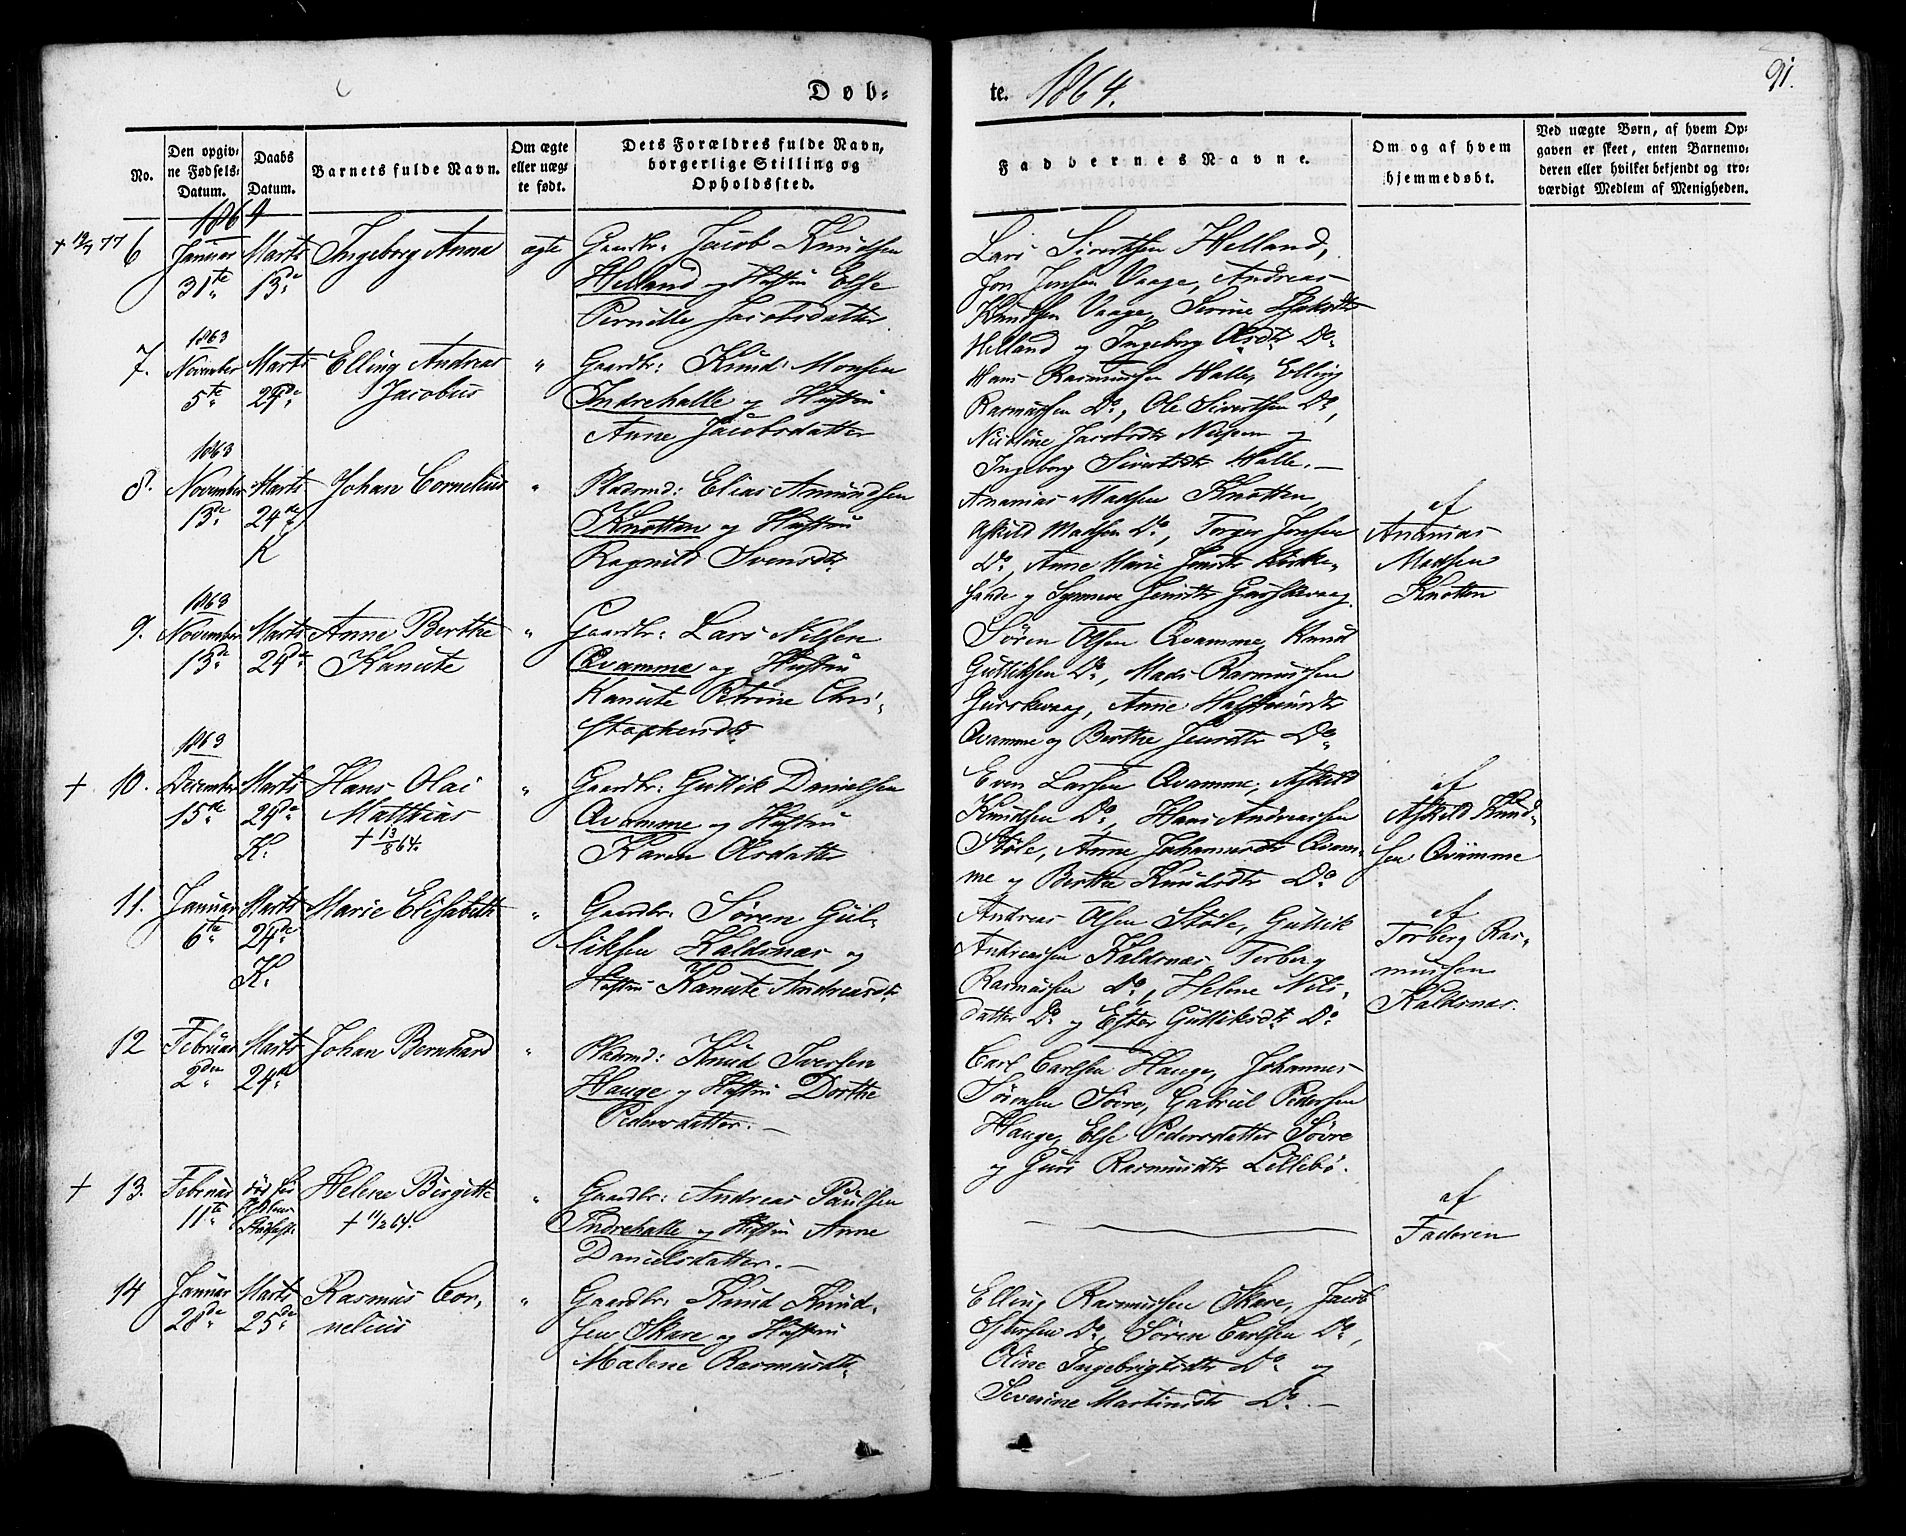 Døb-
te. 1864.
91.
No.
Den opgiv-
ne Fødsels-
Datum.
Daabs
Datum.
Barnets fulde Navn.
Om ægte
eller uæg-
te født.
Dets Forældres fulde Navn,
borgerlige Stilling og
Opholdssted.
Faddernes Navne.
Om og af hvem
hjemmedøbt.
Ved uægte Børn, af hvem Op-
gaven er skeet, enten Barnemo-
deren eller hvilket bekjendt og tro-
værdigt Medlem af Menigheden.
1864
6
Januar
31te
Marts
13de
Ingeborg Anna
ægte
Gaardbr: Jacob Knudsen
Helland og Hustru Else
Pernille Jacobsdatter
Lars Sivertsen Helland,
Jon Jensen Vaage, Andreas
Knudsen Vaage, Serine
Helland og Ingeborg Olsdtr Do.
1863
7.
November
5te
Marts
24de
Elling Andreas
Jacobus
"
Gaardbr: Knud Monsen
Indrehalle og Hustru
Anne Jacobsdatter
Hans Rasmussen Halle, Elling
Rasmussen Do, Ole Sivertsen Do,
Nicoline Jacobsdtr og
Ingeborg Sivertsdtr Halle.
1863
8.
November
13de
Marts
24de
K
Johan Cornelius
"
Pladsmd: Elias Amundsen
Knotten og Hustru
Ragnild Svensdtr
Ananias Madsen Knotten,
Askild Madsen Do, Torger Jonsen
Do, Anne Marie Jensdtr
og Synneve Jensdtr Gurskevaag.
af
Ananias
Madsen
Knotten
1863
9.
November
13de
Marts
24de
Anne Berthe
Kanute
"
Gaardbr: Lars Nilsen
Qvamme og Hustru
Kanute Petrine Chri-
stophersdtr
Søren Olsen Qvamme, Knud
Gulliksen Do, Mads Rasmussen
Gurskevaag, Anne
Qvamme og Berthe Jensdtr Do
1863
+ 10.
December
15de
Marts
24de
K.
Hans Olai
Matthias
+ 13/8 64.
"
Gaardbr: Gullik Danielsen
Qvamme og Hustru
Karen Olsdatter
Even Larsen Qvamme, Askild
Knudsen Do, Hans Andreassen
Støle, Anne Johannesdtr Qvam-
me og Berthe Knudsdtr Do
af
Askild Knud-
sen Qvamme
11.
Januar
6te
Marts
24de
K.
Marie Elisabeth
"
Gaardbr: Søren Gul-
liksen Kaldsnæs og
Hustru Kanute Andreasdtr
Andreas Olsen Støle, Gullik
Andreassen Kaldsnæs, Torberg
Rasmussen Do, Helene Nils-
datter Do og Ester Gulliksdtr Do
af
Torberg Ras-
mussen
Kaldsnæs.
12
Februar
2den
Marts
24de
Johan Bernhard
"
Pladsmd: Knud Iversen
Hauge og Hustru Dorthe
Pedersdatter.
Carl Carlsen Hauge, Johannes
Sørensen Søvre, Gabriel Pedersen
Hauge, Else Pedersdatter Søvre
og Guri Rasmusdtr Lillebø.
+ 13.
Februar
11te
Helene Birgitte
+ 11/2 64.
"
Gaardbr: Andreas Paulsen
Indrehalle og Hustru Anne
Danielsdatter.
af
Faderen
14
Januar
28de
Marts
25de
Rasmus Cor-
nelius
"
Gaardbr: Knud Knud-
sen Skare og Hustru
Malene Rasmusdtr
Elling Rasmussen Skare, Jacob
Do, Søren Carlsen Do,
Oline Ingebrigtsdtr Do og
Severine Martinusdtr Do.